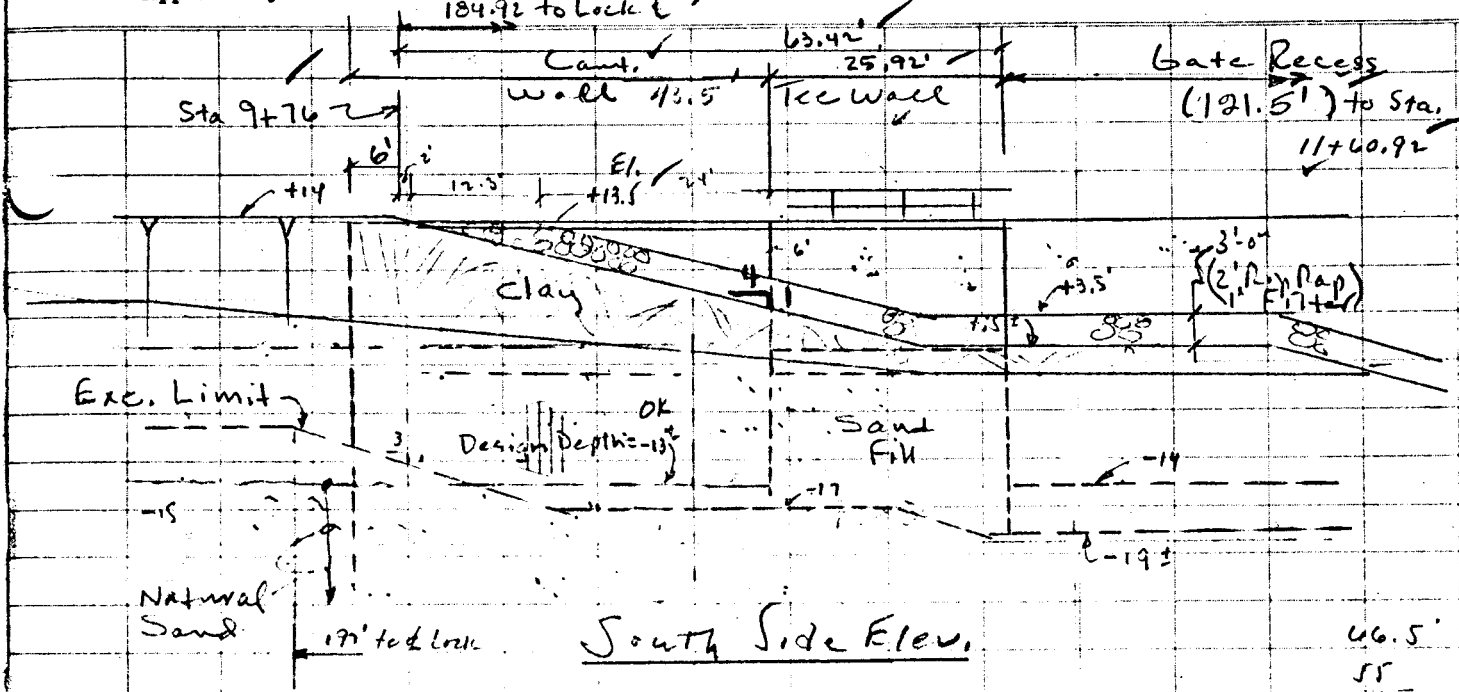 184.92 to Lock ℄
63.42'
Cant.
Wall 43.5
25.92'
Tee Wall
Gate Recess
(121.5') to Sta.
11+60.92
Sta 9+76
6'
2'
12.3'
El.
+13.5
24'
+14
6'
3'-0"
(2' Rip Rap
1' Filter)
+3.5'
Clay
4
1
Exc. Limit
OK
Design Depth = -13±
Sand
Fill
3
-14
-15
-17
-19±
Natural
Sand
to ℄ Lock
South Side Elev.
46.5'
55